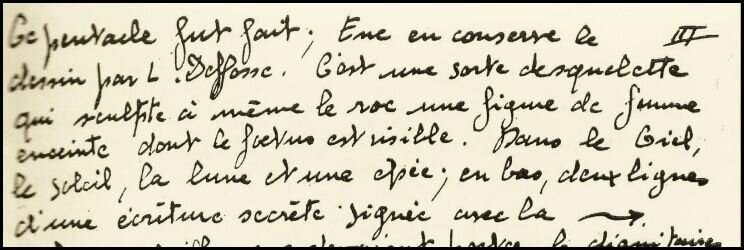 Ce pentacle fut fait ; Eve en conserve le III
dessin par L. Deffosse. C'est une sorte de squelette
qui sculpte à même le roc une figure de femme
enceinte dont le foetus est visible. Dans le Ciel,
le soleil, la lune et une épée ; en bas, deux lignes
d'une écriture secrète signée avec la
devient porter le dignitaires